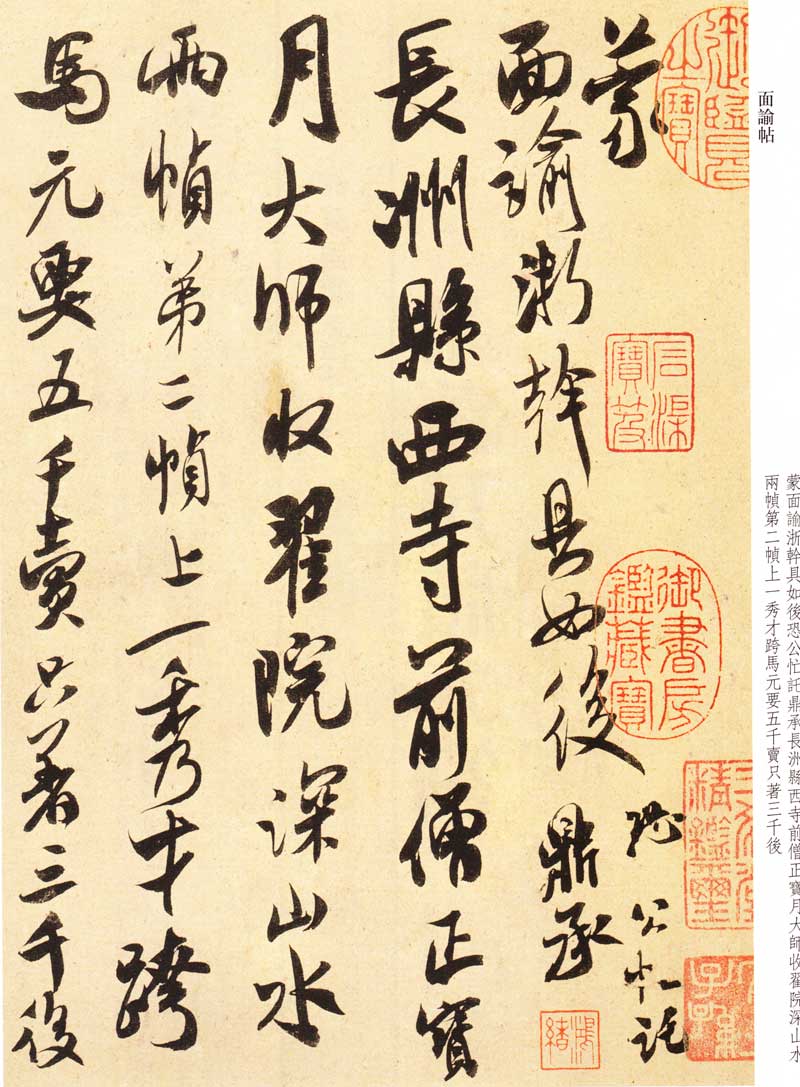 面諭帖
蒙面諭浙幹具如後恐公忙託鼎承長洲縣西寺前僧正寶月大師收翟院深山水
兩幀第二幀上一秀才跨馬元要五千賣只著三千後
御覽之寶
石渠寶笈
御書房鑑藏寶
三希堂精鑑璽
宜子孫
蒙
恐公忙託
面諭浙幹具如後鼎承
鴻緒
長洲縣西寺前僧正寶
月大師收翟院深山水
兩幀第二幀上一秀才跨
馬元要五千賣只著三千後